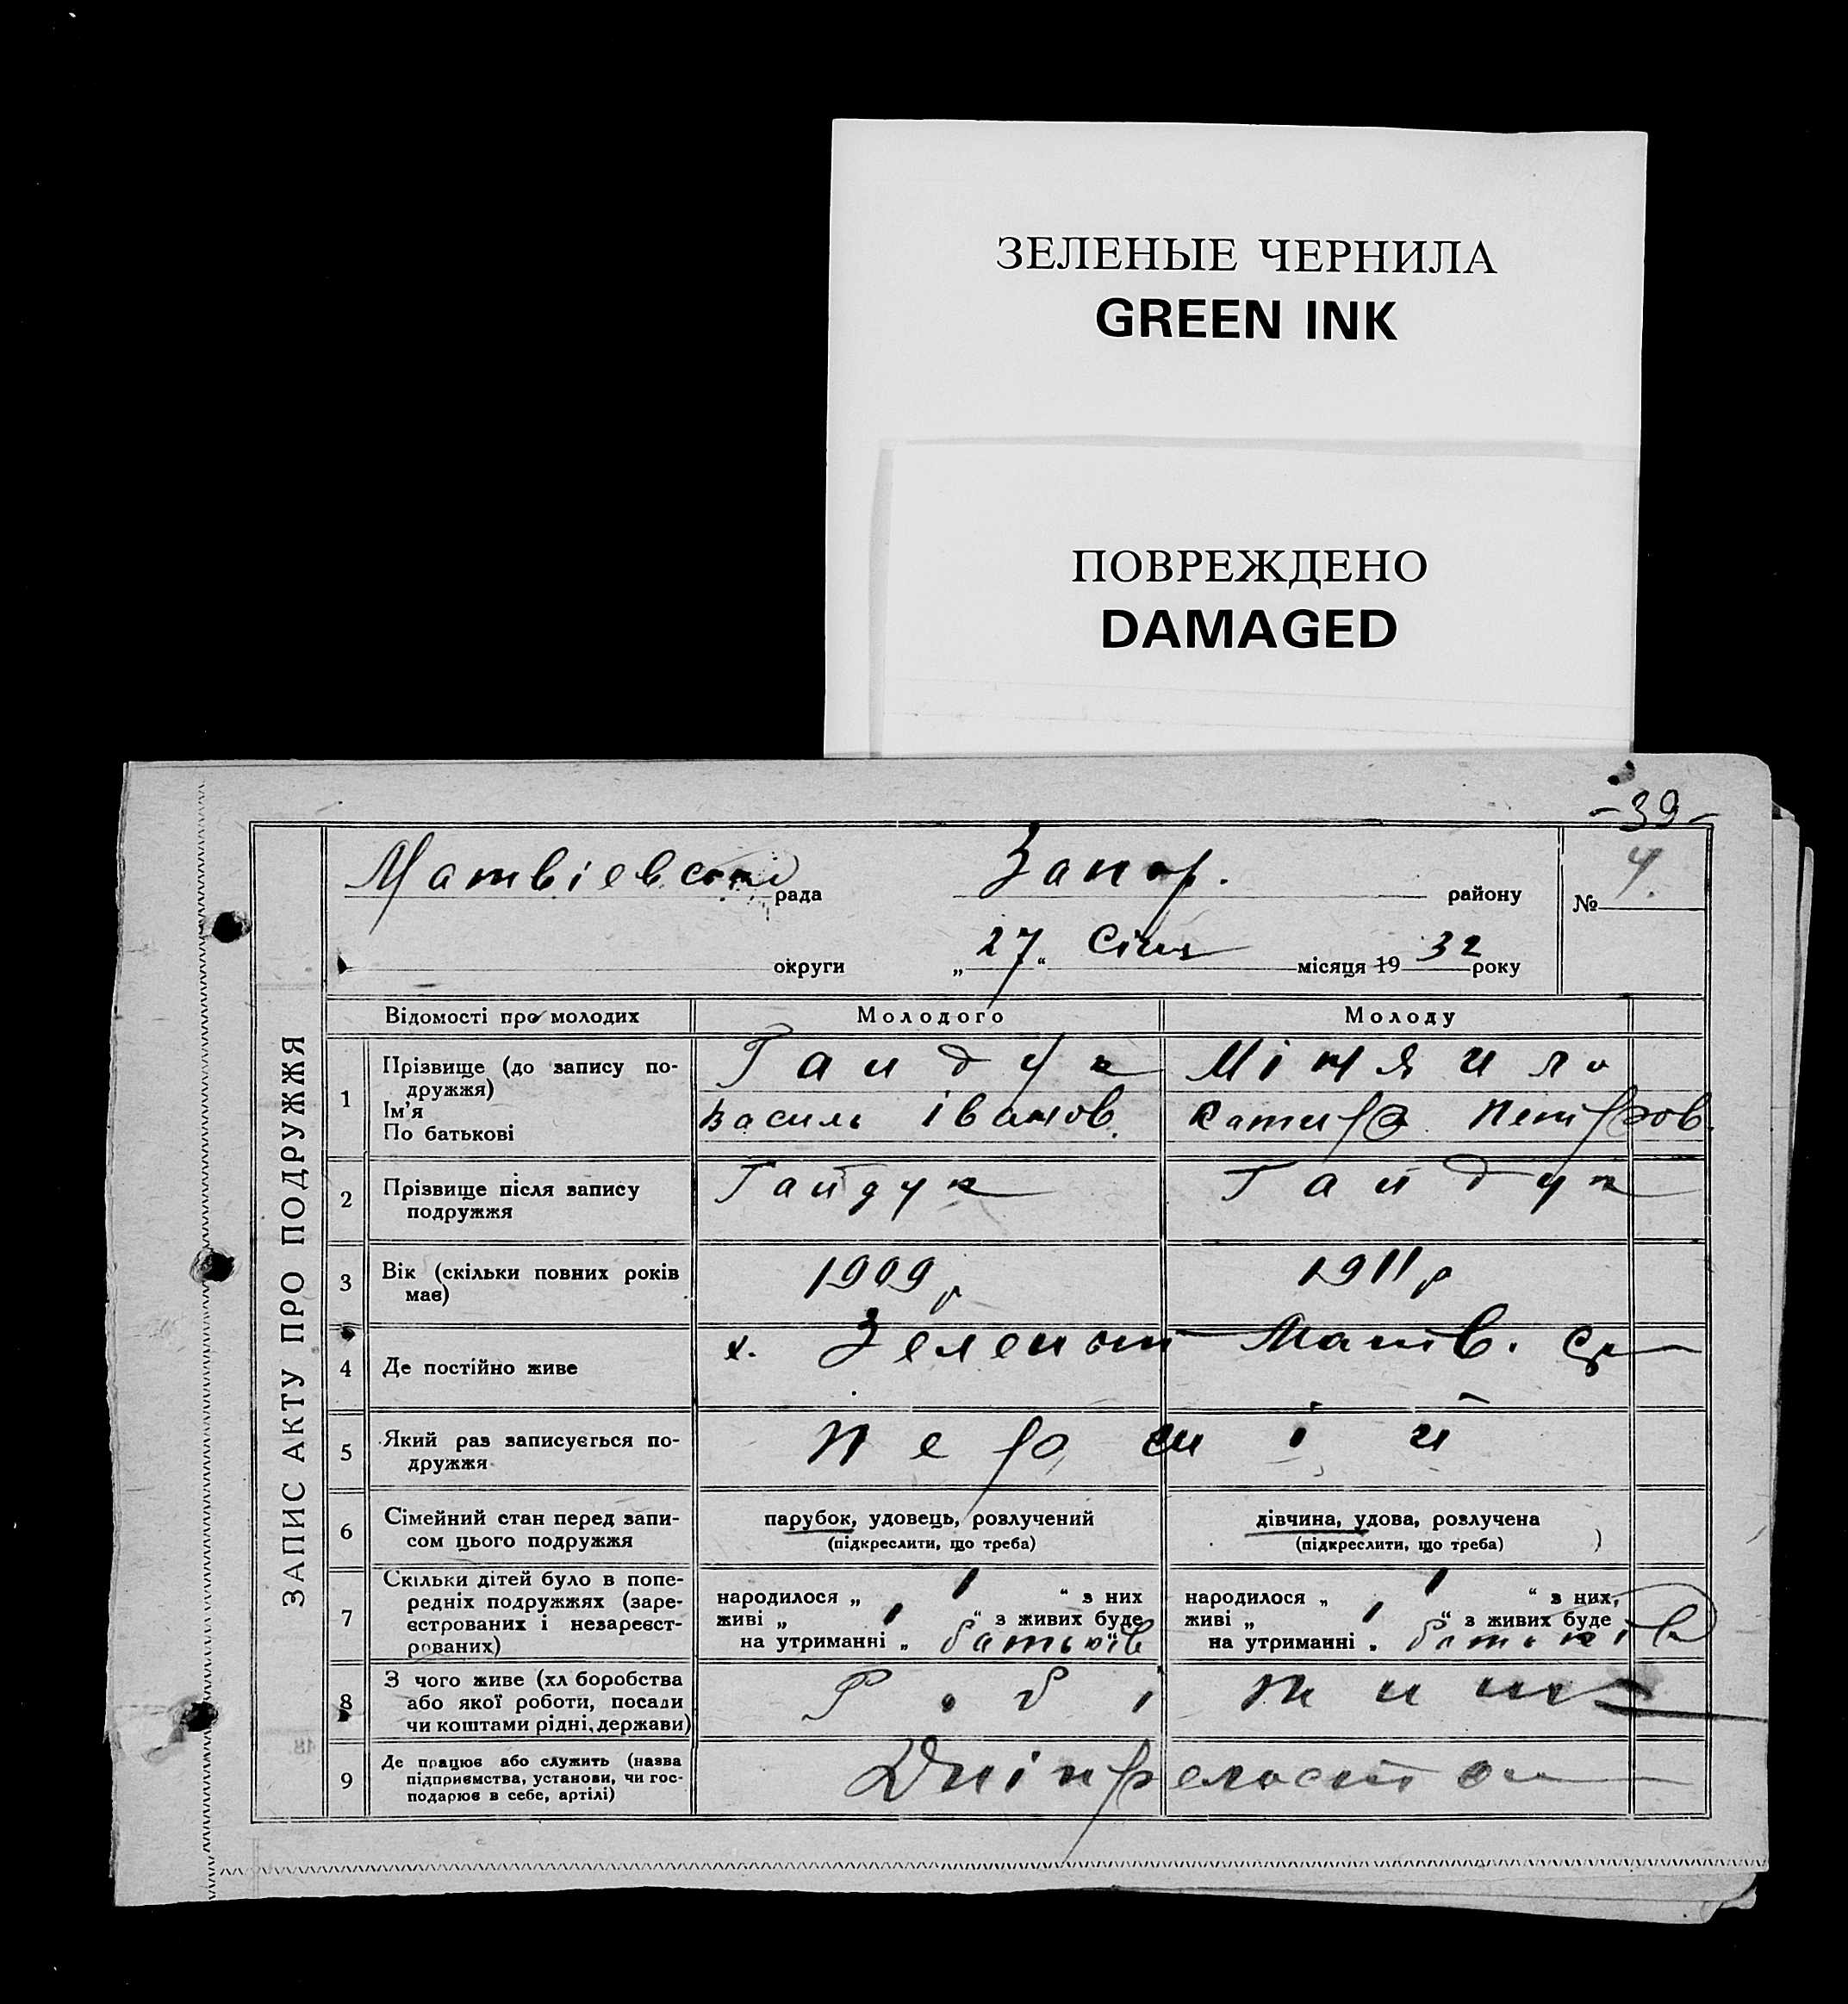 ЗЕЛЕНЫЕ ЧЕРНИЛА
GREEN INK
ПОВРЕЖДЕНО
DAMAGED
-39-
ЗАПИС АКТУ ПРО ПОДРУЖЖЯ
рада Запор. району № 4.
округи „27“ Січня місяця 1932 року
Відомості про молодих Молодого Молоду
1 Прізвище (до запису по-
дружжя)
Ім'я
По батькові
Гайдук
Василь Іванов.
Петров.
2 Прізвище після запису
подружжя
Гайдук Гайдук
3 Вік (скільки повних років
має)
1909 р 1911 р
4 Де постійно живе
х. Матв. с/р
5 Який раз записується по-
дружжя
Перший
6 Сімейний стан перед запи-
сом цього подружжя
парубок, удовець, розлучений
(підкреслити, що треба)
дівчина, удова, розлучена
(підкреслити, що треба)
7 Скільки дітей було в попе-
редніх подружжях (заре-
єстрованих і незареєст-
рованих)
народилося „ “ з них
живі „ “ з живих буде
на утриманні „ батьків
народилося „ “ з них,
живі „ “ з живих буде
на утриманні „ батьків
8 З чого живе (хл боробства
або якої роботи, посади
чи коштами рідні, держави)
9 Де працює або служить (назва
підприємства, установи, чи гос-
подарює в себе, артілі)